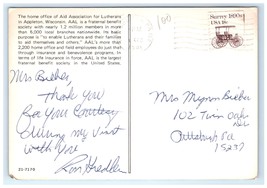 The home office of Aid Association for Lutherans
in Appleton, Wisconsin. AAL is a fraternal benefit
society with nearly 1.2 million members in more
than 6,000 local branches nationwide. Its basic
purpose is "to enable Lutherans and their families to
aid themselves and others." AAL's more than
2,200 home office and field employees do just that
through insurance and benevolence programs. In
terms of life insurance in force, AAL is the largest
fraternal benefit society in the United States.
Surrey 1890s
USA 18c
Mrs Bieber,
Thank you
For your courtesy
during my visit
with you
Ron
Mrs Myron Bieber
102 Twin Oak
Pittsburgh Pa
15237